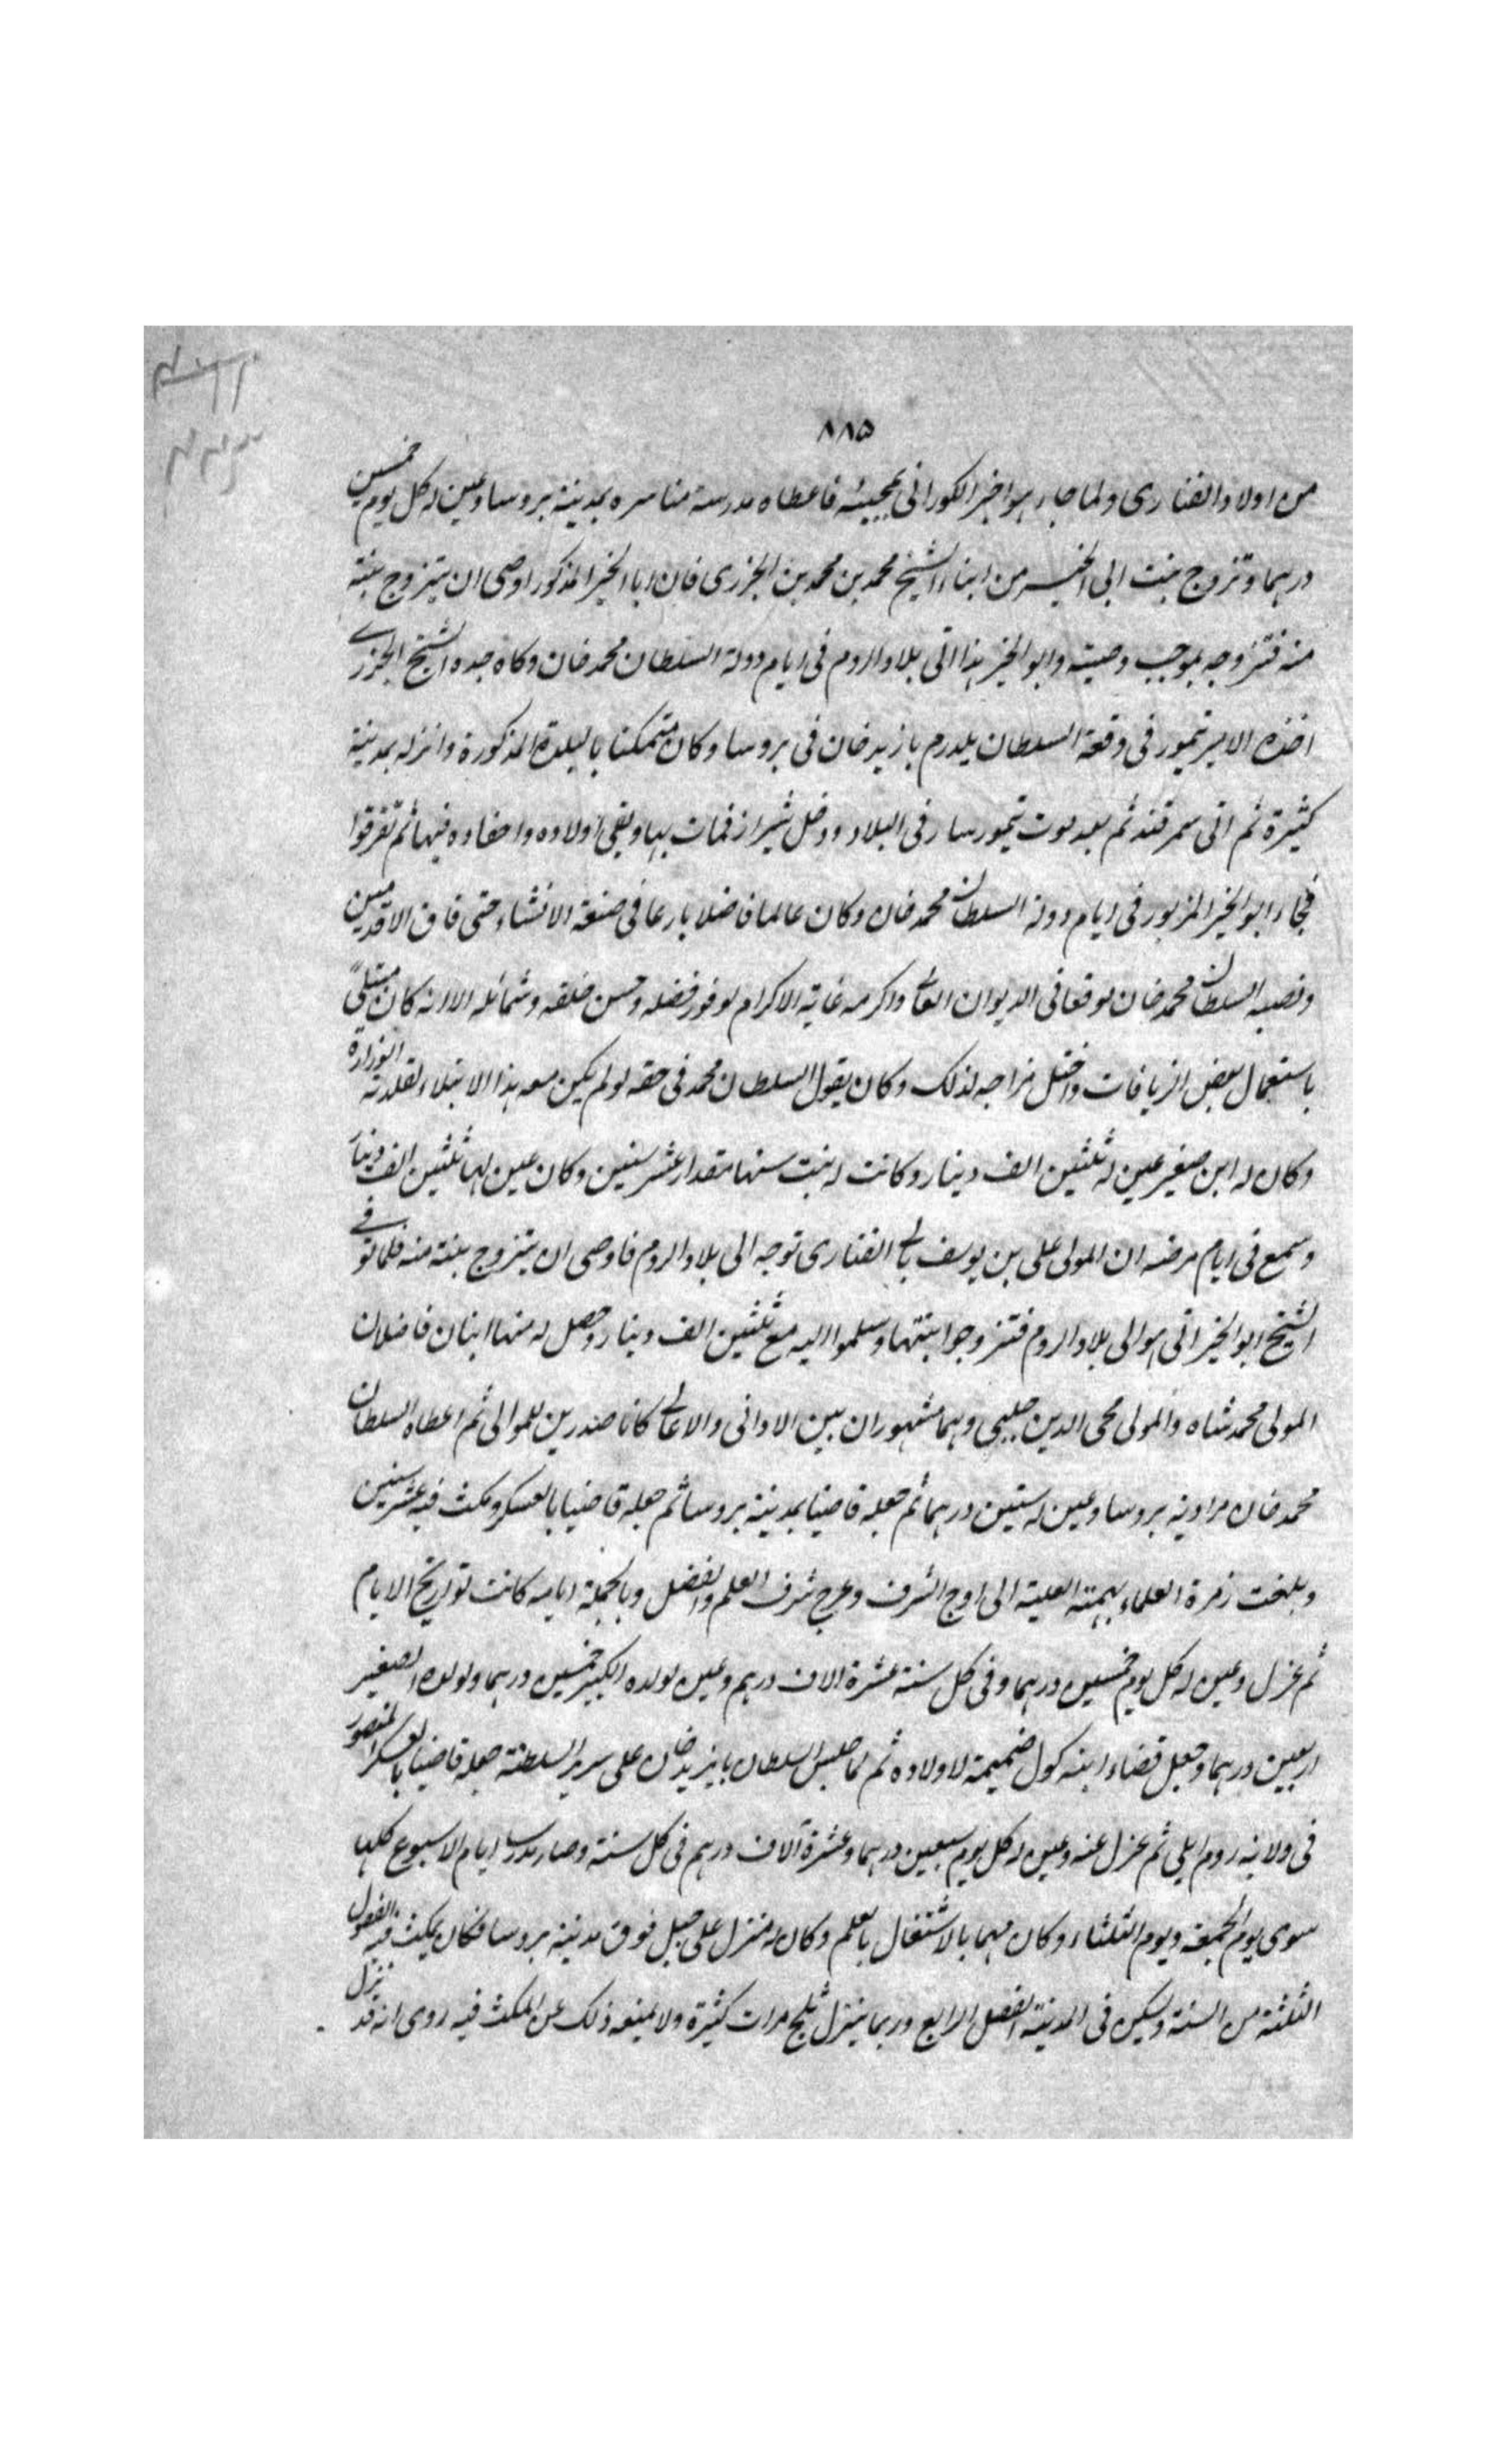 ٨٨٥
من اولاد الفنارى ولما جاء هو اخبر الكورانى بمجيئه فاعطاه مدرسة مناستر ه بمدينة بروسا وعين له كل يوم خمسين
درهما وتزوج بنت ابى الخير من ابناء الشيخ محمد بن محمد بن الجزرى فان ابا الخير المذكور اوصى ان يتزوج بنته
منه فتزوجه بموجب وصيته وابو الخير هذا اتى بلاد الروم فى ايام دولة السلطان محمد خان وكان جده الشيخ الجزرى
اخذه الامير تيمور فى وقعة السلطان يلدرم بازيد خان فى بروسا وكان متمكنا بالبلدة المذكورة وانزله بمدينة
كثيرة ثم اتى سمرقند ثم بعد موت تيمور سار فى البلاد ودخل شيراز فمات بها وبقى اولاده واحفاده فيها ثم تفرقوا
فجاء ابو الخير المزبور فى ايام دولة السلطان محمد خان وكان عالما فاضلا بارعا فى صنعة الانشاء حتى فاق الاقدمين
ونصبه السلطان محمد خان موقعا فى الديوان العالى واكرمه غاية الاكرام لوفور فضله وحسن خلقه وشمائله الا انه كان مبتلى
باستعمال بعض الترياقات واختل مزاجه لذلك وكان يقول السلطان محمد فى حقه لو لم يكن معه هذا الابتلاء لقلدته الوزارة
وكان له ابن صغير عين له ثلثين الف دينار وكانت له بنت سنها مقدار عشر سنين وكان عين لها ثلثين الف دينار
وسمع فى ايام مرضه ان المولى على بن يوسف بالى الفنارى توجه الى بلاد الروم فاوصى ان يتزوج بنته منه فلما توفى
الشيخ ابو الخير اتى هو الى بلاد الروم فتزوجوا بنتها وسلموا اليه مع ثلثين الف دينار وحصل له منها ابنان فاضلان
المولى محمد شاه والمولى محى الدين چلبى وهما مشهوران بين الادانى والاعالى كانا صدرين للموالى ثم اعطاه السلطان
محمد خان مرادية بروسا وعين له ستين درهما ثم جعله قاضيا بمدينة بروسا ثم جعله قاضيا بالعسكر ومكث فيه عشر سنين
وبلغت زمرة العلماء بهمته العلية الى اوج الشرف وعرج شرف العلم والفضل وبالجملة ايامه كانت تواريخ الايام
ثم عزل وعين له كل يوم خمسين درهما وفى كل سنة عشرة الاف درهم وعين لولده الكبير خمسين درهما ولولده الصغير
اربعين درهما وجعل قضاء اينه كول ضميمة لاولاده ثم لما جلس السلطان بايزيد خان على سرير السلطنة جعله قاضيا بالعسكر المنصور
فى ولاية روم ايلى ثم عزل عنه وعين له كل يوم سبعين درهما وعشرة آلاف درهم فى كل سنة وصار يدرس ايام الاسبوع كلها
سوى يوم الجمعة ويوم الثلثاء وكان مهما بالاشتغال بالعلم وكان له منزل على جبل فوق مدينة بروسا فكان يمكث فيه الفصول
الثلثة من السنة ويسكن فى المدينة الفصل الرابع وربما ينزل ثلج مرات كثيرة ولا يمنعه ذلك عن المكث فيه روى انه قد نزل